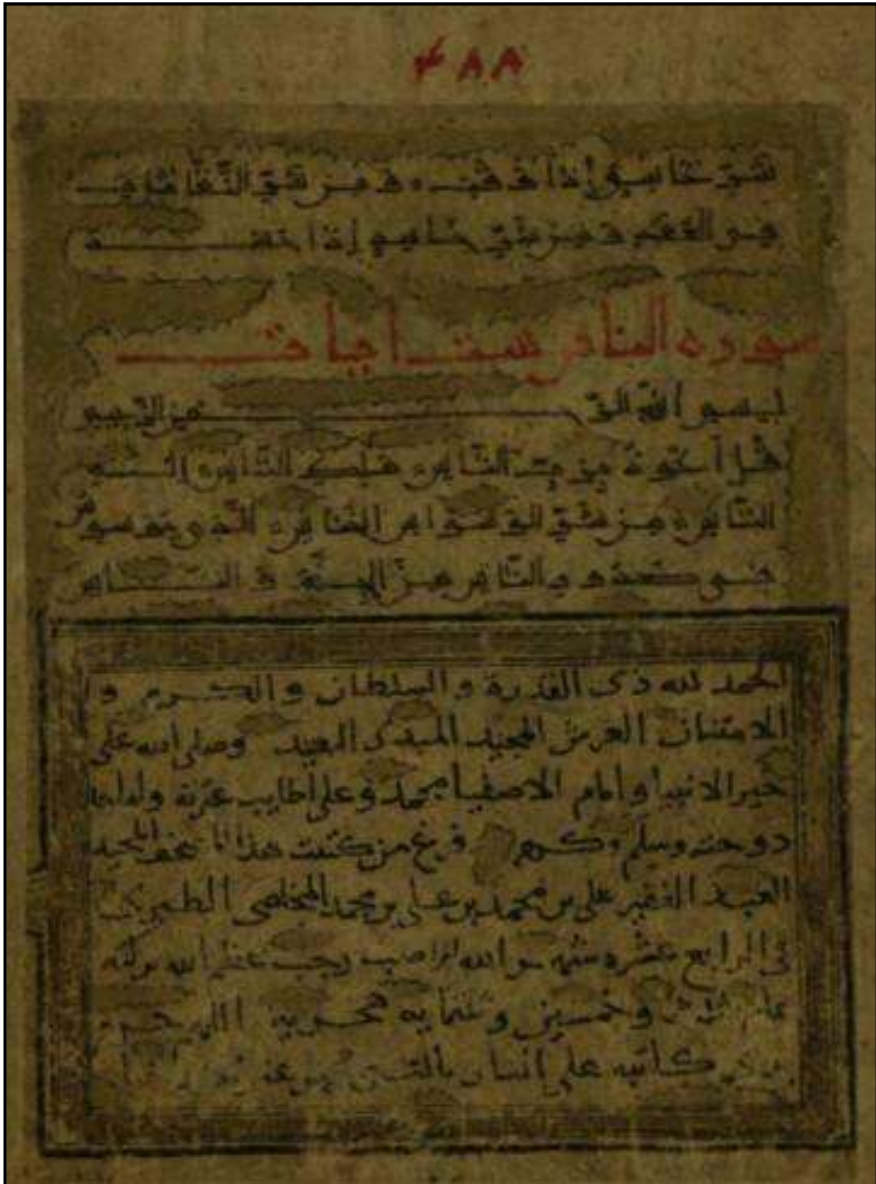 ٤٨٨
شر غاسق إذا وقب و من شر النفاثات
في العقد و من شر حاسد إذا حسد
سورة الناس ست ايات
بسم الله الرحمن الرحيم
قل أعوذ برب الناس ملك الناس إله
الناس من شر الوسواس الخناس الذي يوسوس
في صدور الناس من الجنة و الناس
الحمد لله ذى القدرة و السلطان و الكرم و
الامتنان العرش المجيد المبدى المعيد وصلى الله على
خير الانبيا و امام الاصفيا محمد و على اطايب عترته
دوحته وسلم وكرم فرغ من كتبت هذا المجيد
العبد الفقير على بن محمد بن على بن محمد المخلصى
فى الرابع عشر من شهر الله رجب عظم الله بركته
وخمسين و هجرية اللهم
كاتبه على